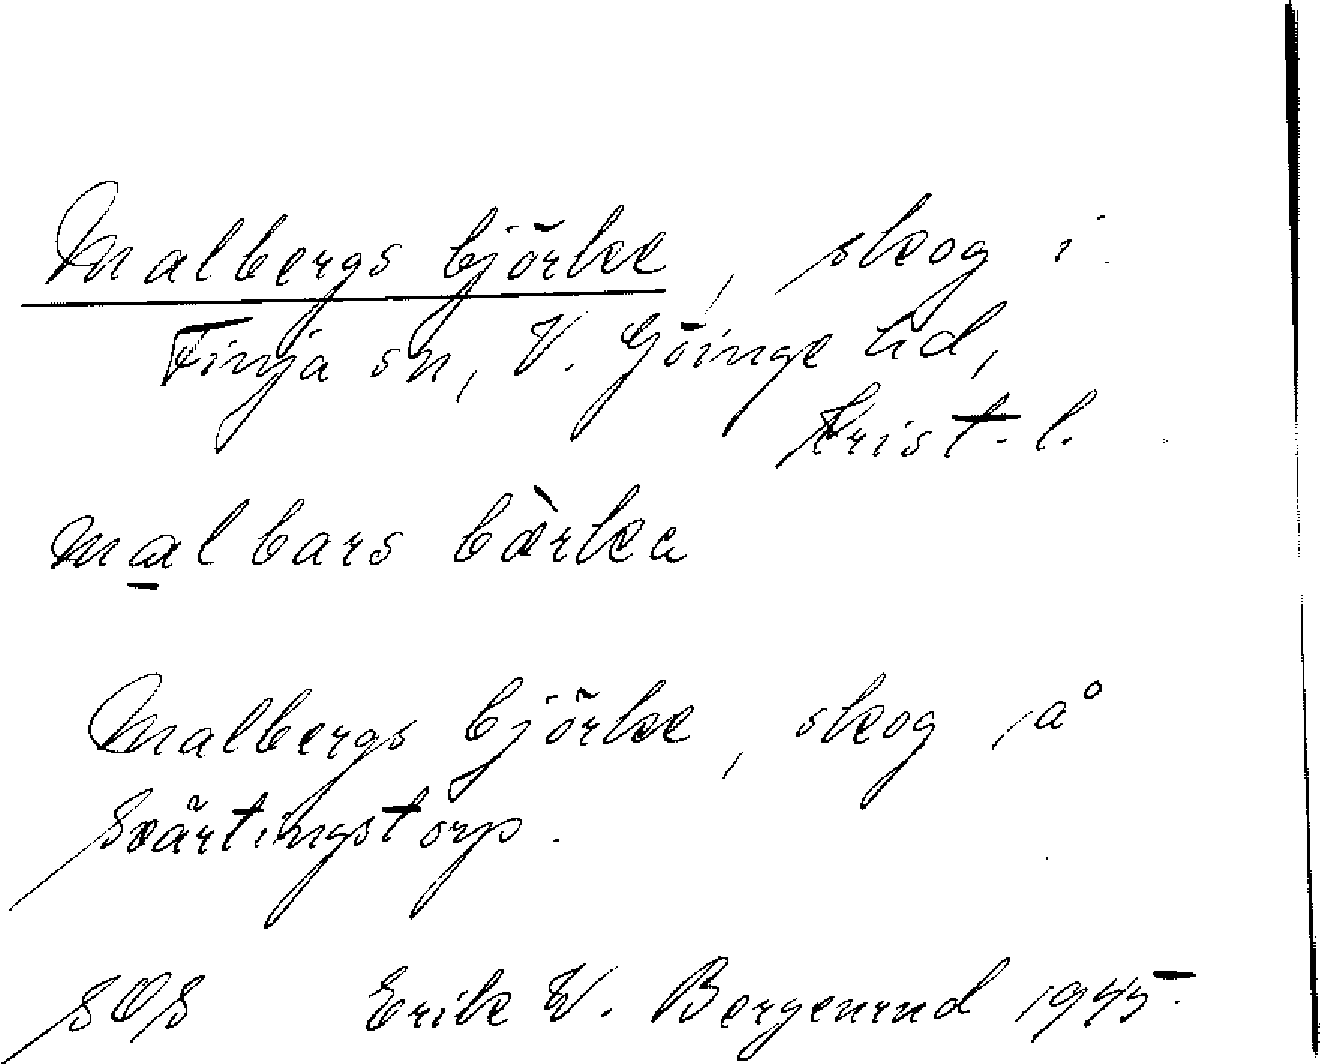 Malbergs björke, skog i
Finja sn, V. Göinge hd,
Krist. l.
malbars bàrka
Malbergs björke, skog på
Svärtingstorp.
SOS Erik W. Bergenrud 1945.